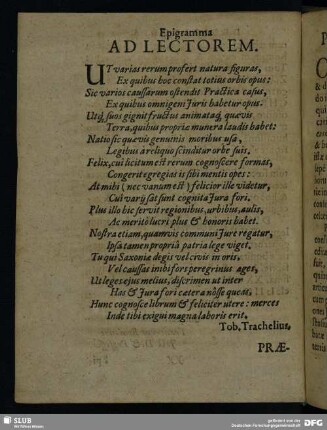 Epigramma
AD LECTOREM.
UT varias rerum profert natura figuras,
Ex quibus hoc constat totius orbis opus:
Sic varios caussarum ostendit Practica casus,
Ex quibus omnigeni Juris habetur opus.
Utq; suos gignit fructus animataq, quævis
Terra, quibus propriæ munera laudis habet:
Natio sic quævis genuinis moribus usa,
Legibus à reliquo scinditur orbe suis,
Felix, cui licitum est rerum cognoscere formas,
Congerit egregias is sibi mentis opes:
At mihi (nec vanum est) felicior ille videtur,
Cui varÿ sat sunt cognita Jura fori.
Plus illo hic servit regionibus, urbibus, aulis,
Ac meritò lucri plus & honoris habet.
Nostra etiam, quamvis communi Jure regatur,
Ipsa tamen propriâ patria lege viget.
Tu qui Saxoniæ degis vel civis in oris,
Vel caussas inibi fors peregrinus ages,
Ut leges ejus melius, discrimen ut inter
Has & Jura fori cætera nôsse queas,
Hunc cognosce librum & feliciter utere: merces
Inde tibi exigui magna laboris erit.
Tob. Trachelius.
PRÆ-
SLUB
Wir führen Wissen.
gefördert von der
Deutschen Forschungsgemeinschaft
DFG